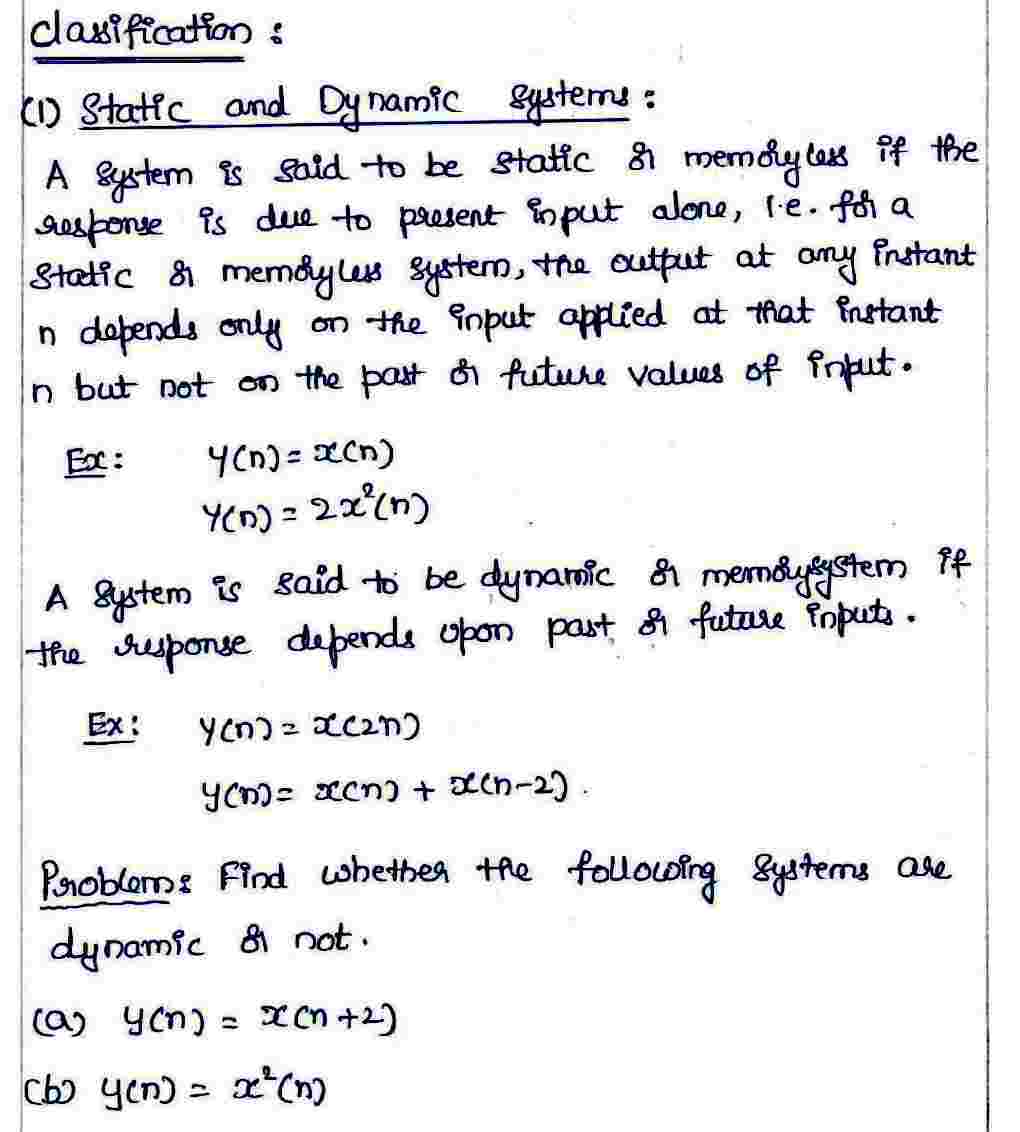 Classification :
(1) Static and Dynamic Systems :
A System is said to be static or memoryless if the
response is due to present input alone, i.e. for a
Static or memoryless system, the output at any instant
n depends only on the input applied at that instant
n but not on the past or future values of input.
Ex: y(n) = x(n)
y(n) = 2x²(n)
A System is said to be dynamic or memorysystem if
the response depends upon past or future inputs.
Ex: y(n) = x(2n)
y(n) = x(n) + x(n-2).
Problem: Find whether the following systems are
dynamic or not.
(a) y(n) = x(n+2)
(b) y(n) = x²(n)